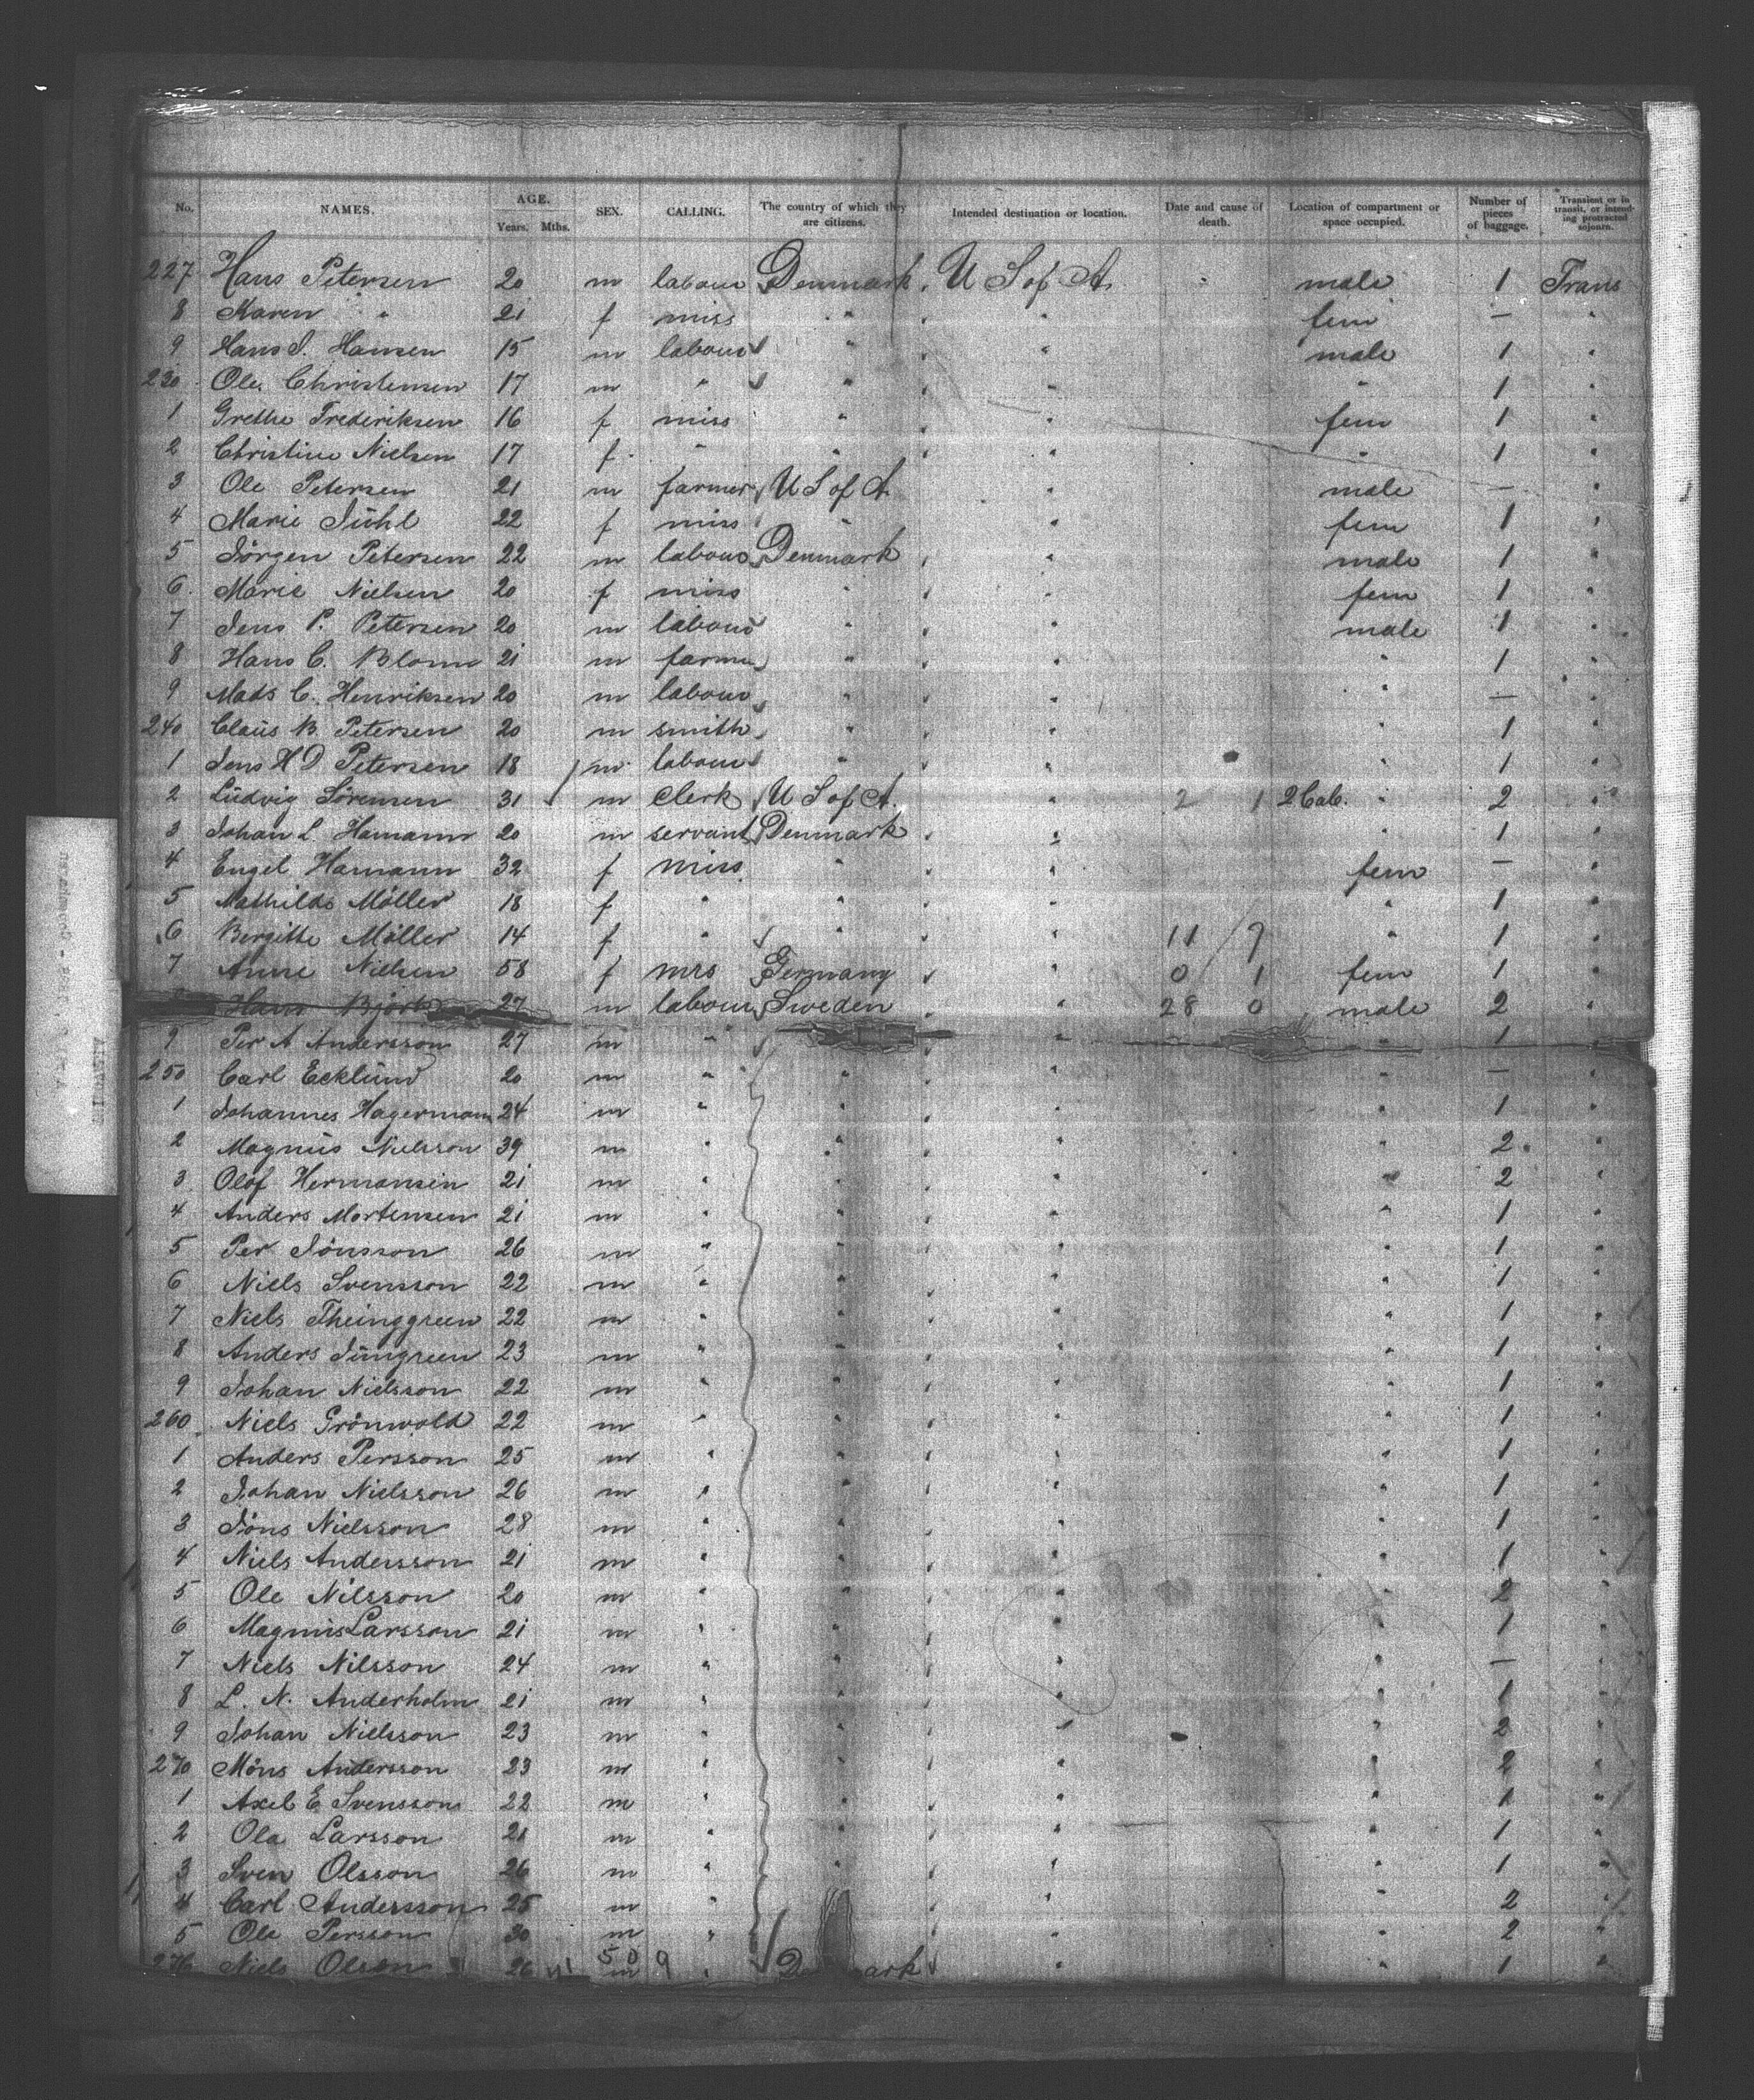 No. NAMES. AGE. Years. Mths. SEX. CALLING. The country of which they are citizens. Intended destination or location. Date and cause of death. Location of compartment or space occupied. Number of pieces of baggage. Transient or in transit, or intending protracted sojourn.
227 Hans Petersen 20 m labour Denmark U S of A. male 1 Trans
8 Karen " 21 f miss " " fem — "
9 Hans J. Hansen 15 m labour " " male 1 "
230 Ole Christensen 17 m " " " " 1 "
1 Grethe Frederiksen 16 f miss " " fem 1 "
2 Christine Nielsen 17 f " " " " 1 "
3 Ole Petersen 21 m farmer U S of A. " male — "
4 Marie Jühl 22 f miss " " fem 1 "
5 Jörgen Petersen 22 m labour Denmark " male 1 "
6 Marie Nielsen 20 f miss " " fem 1 "
7 Jens P. Petersen 20 m labour " " male 1 "
8 Hans C. Blom 21 m farmer " " " 1 "
9 Mads C. Henriksen 20 m labour " " " — "
240 Claüs B. Petersen 20 m smith " " " 1 "
1 Jens H D Petersen 18 m labour " " " 1 "
2 Lüdvig Sörensen 31 m clerk U S of A. " 2 1 2 Cab. " 2 "
3 Johan L. Hamann 20 m servant Denmark " " 1 "
4 Engel Hamann 32 f miss " " fem — "
5 Mathilde Möller 18 f " " " " 1 "
6 Bergitte Möller 14 f " " " 11 / 7 " 1 "
7 Anne Nielsen 58 f mrs Germany " 0 1 fem 1 "
Hans Björk 27 m labour Sweden " 28 0 male 2 "
9 Per A Andersson 27 m " " 1 "
250 Carl Ecklünd 20 m " " " " — "
1 Johannes Hagermann 24 m " " " " 1 "
2 Magnüs Nielsson 39 m " " " " 2 "
3 Olof Hermansin 21 m " " " " 2 "
4 Anders Mortensen 21 m " " " " 1 "
5 Per Jönsson 26 m " " " " 1 "
6 Niels Svensson 22 m " " " " 1 "
7 Niels Theinggreen 22 m " " " " 1 "
8 Anders Jüngreen 23 m " " " " 1 "
9 Johan Nielsson 22 m " " " " 1 "
260 Niels Grönwold 22 m " " " " 1 "
1 Anders Persson 25 m " " " " 1 "
2 Johan Nielsson 26 m " " " " 1 "
3 Jöns Nielsson 28 m " " " " 1 "
4 Niels Andersson 21 m " " " " 1 "
5 Ole Nilsson 20 m " " " " 2 "
6 Magnüs Larsson 21 m " " " " 1 "
7 Niels Nilsson 24 m " " " " — "
8 L. N. Anderholm 21 m " " " " 1 "
9 Johan Nielsson 23 m " " " " 2 "
270 Möns Andersson 23 m " " " " 2 "
1 Axel E Svensson 22 m " " " " 1 "
2 Ola Larsson 21 m " " " " 1 "
3 Sven Olsson 26 m " " " " 1 "
4 Carl Andersson 25 m " " " 2 "
5 Ole Persson 30 m " " " 2 "
276 Niels Olson 26 m " " " 1 "